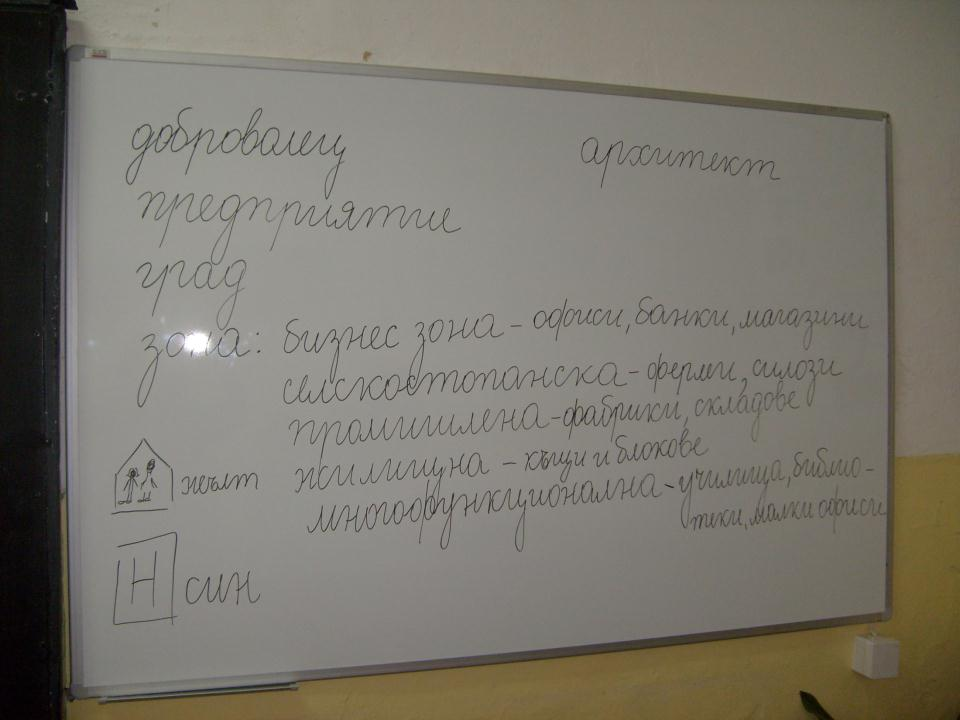 доброволец архитект
предприятие
град
зона: бизнес зона - офиси, банки, магазини
селскостопанска - ферми, силози
промишлена - фабрики, складове
жълт жилищна - къщи и блокове
многофункционална - училища, библио-
теки, малки офиси
H син